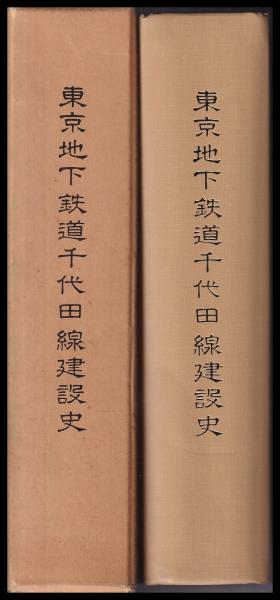 東京地下鉄道千代田線建設史
東京地下鉄道千代田線建設史